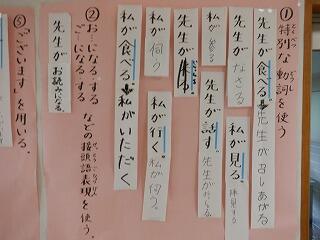 ①特別な動詞を使う
とくべつ どうし
先生が食べる→先生がめしあがる
先生がなさる
私が見る、拝見する
先生が話す。先生が
私が参る
先生が来
私が伺う
私が行く。私が伺う。
私が食べる→私がいただく
②お〜になる、する
ご〜になる する
などの接頭語表現を使う。
先生がお読みになる。
③「ございます」を用いる。